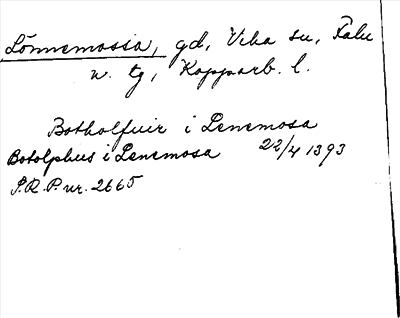 Lönnemossa, gd, Vika sn, Falu
n. tg, Kopparb. l.
Botholfuir i Lenemosa
Botolphus i Lenemosa 22/4 1393
S.R.P. nr. 2665